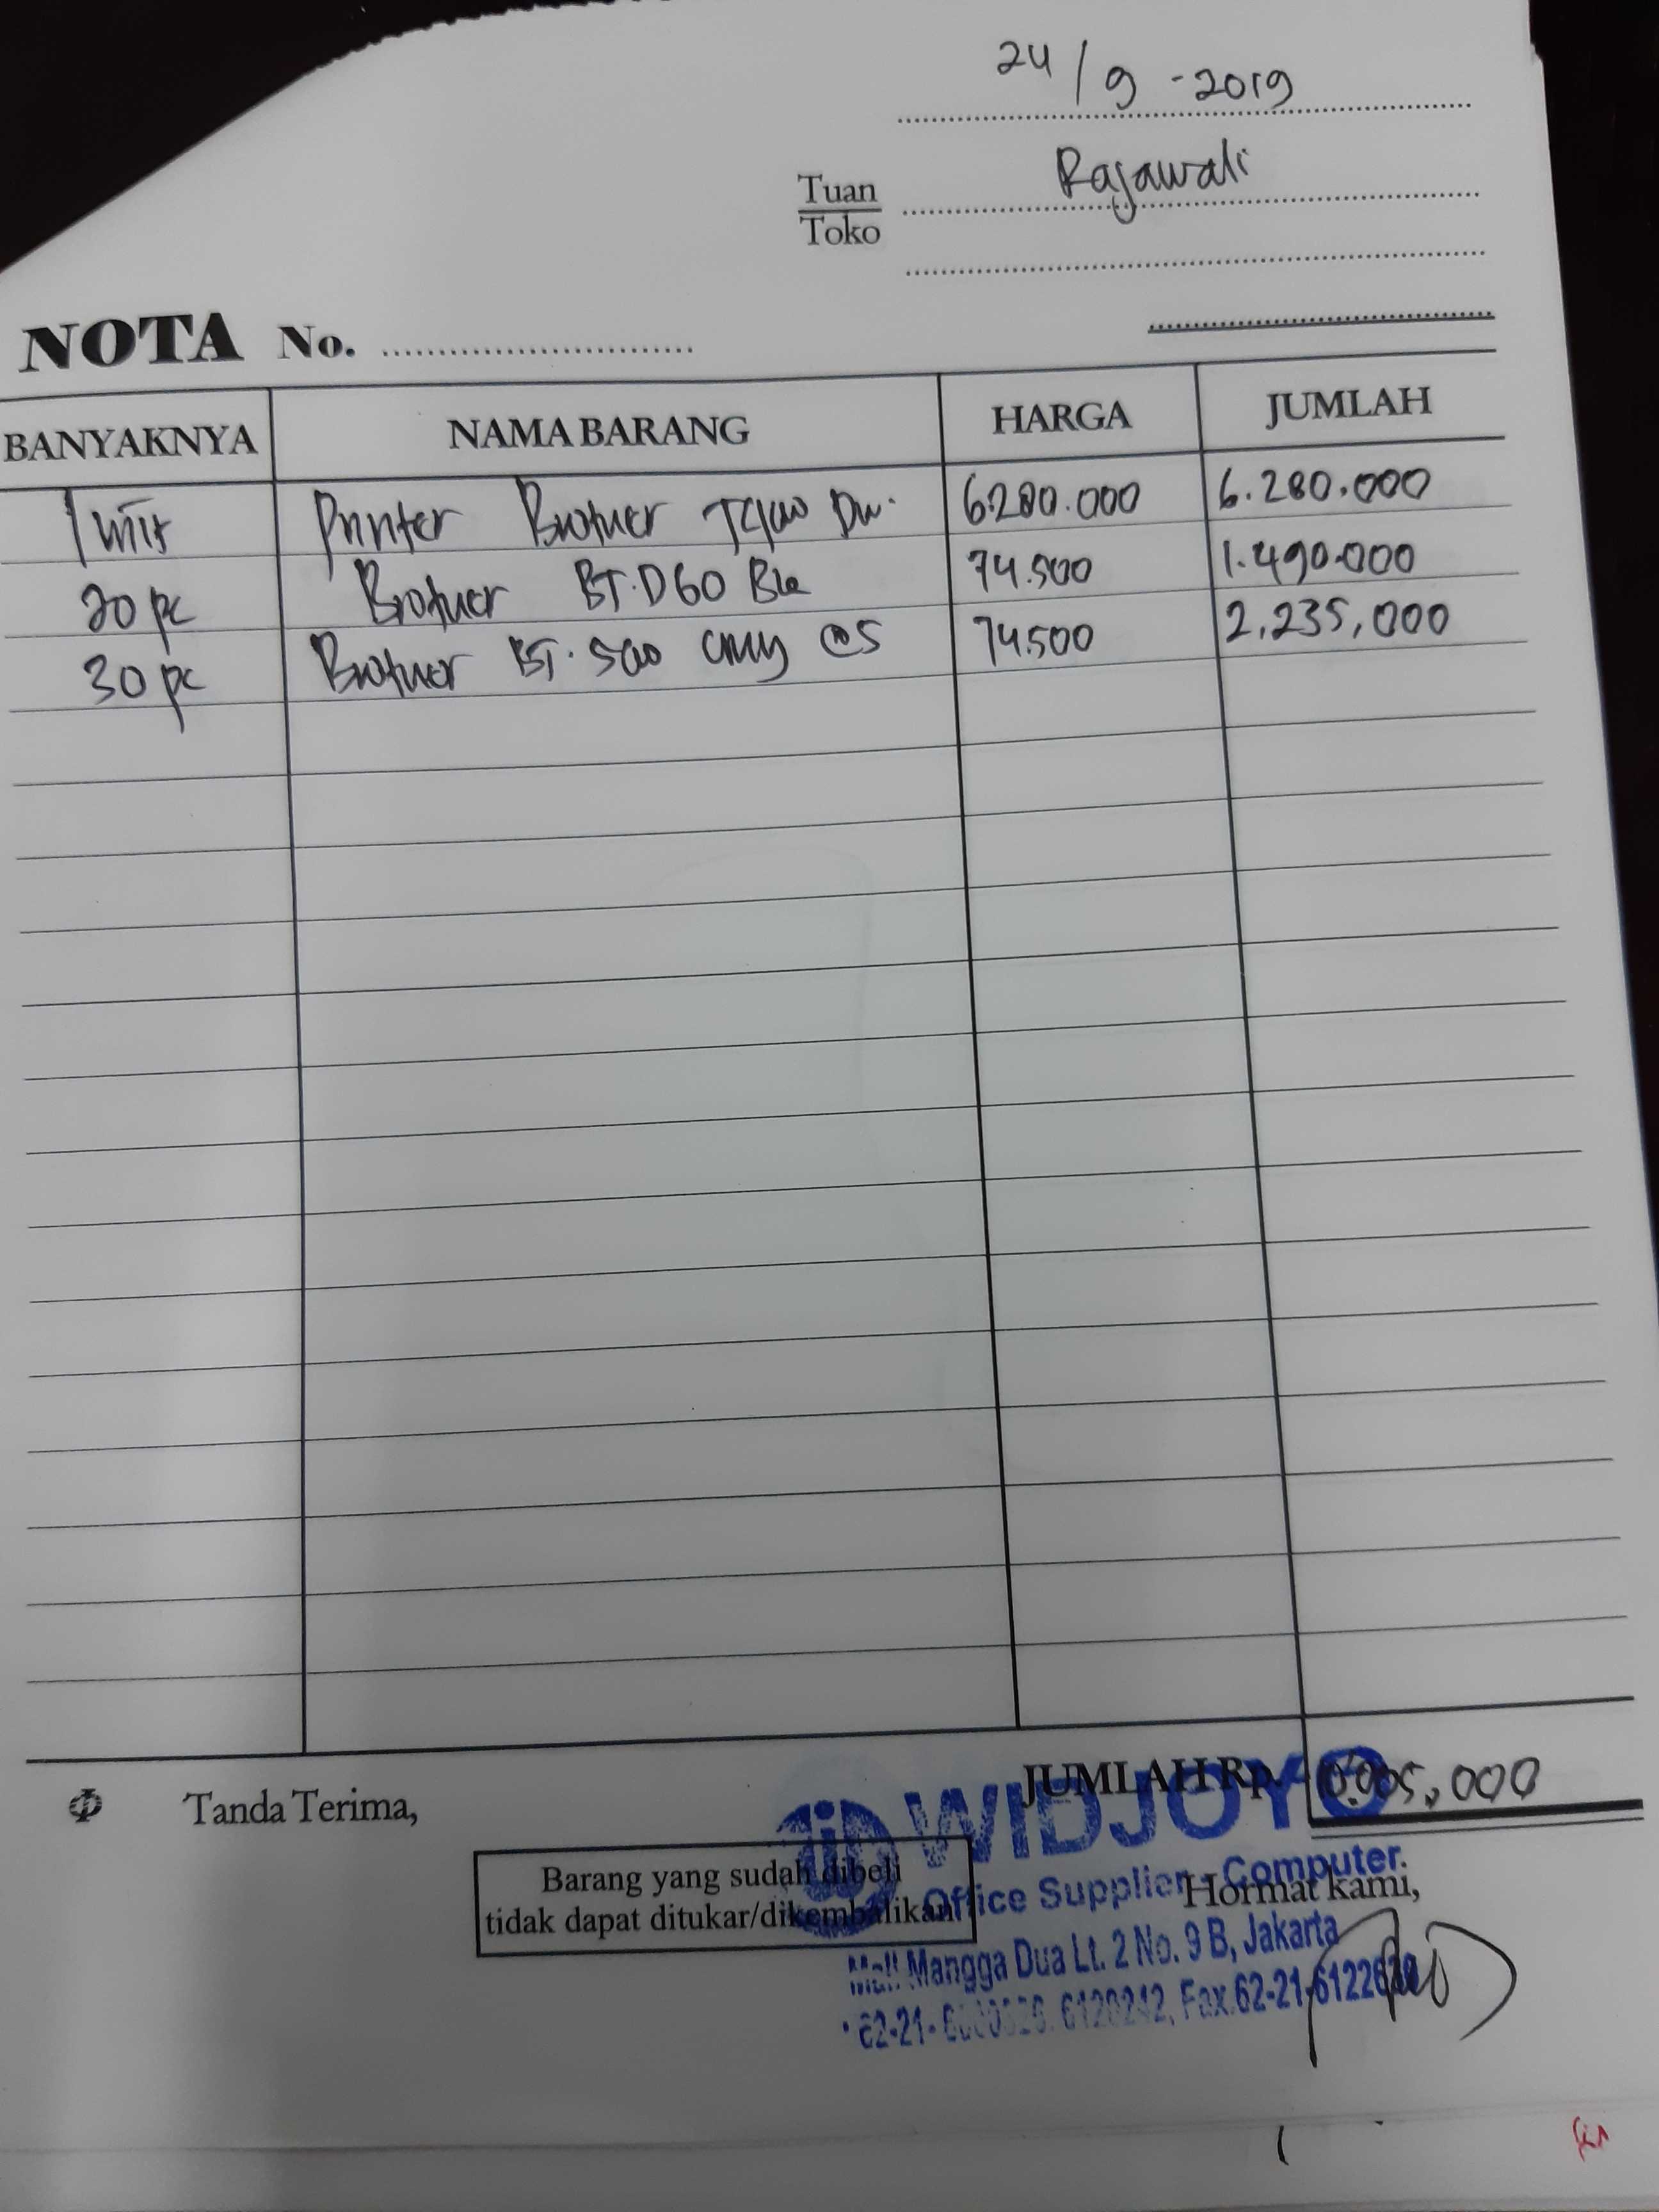 24/9-2019
Tuan
Toko
Rajawali
NOTA No.
BANYAKNYA NAMA BARANG HARGA JUMLAH
1 unit Printer Brother T4500 Dw. 6.280.000 6.280.000
20 pc Brother BT.D60 Blk 74.500 1.490.000
30 pc Brother BT.5000 CMY @5 74.500 2,235,000
JUMLAH Rp. 10.005,000
Tanda Terima,
WIDJOYO
Barang yang sudah dibeli
tidak dapat ditukar/dikembalikan
Office Supplier - Computer.
Hormat kami,
Mall Mangga Dua Lt. 2 No. 9 B, Jakarta
62-21- 6120242, Fax.62-21-